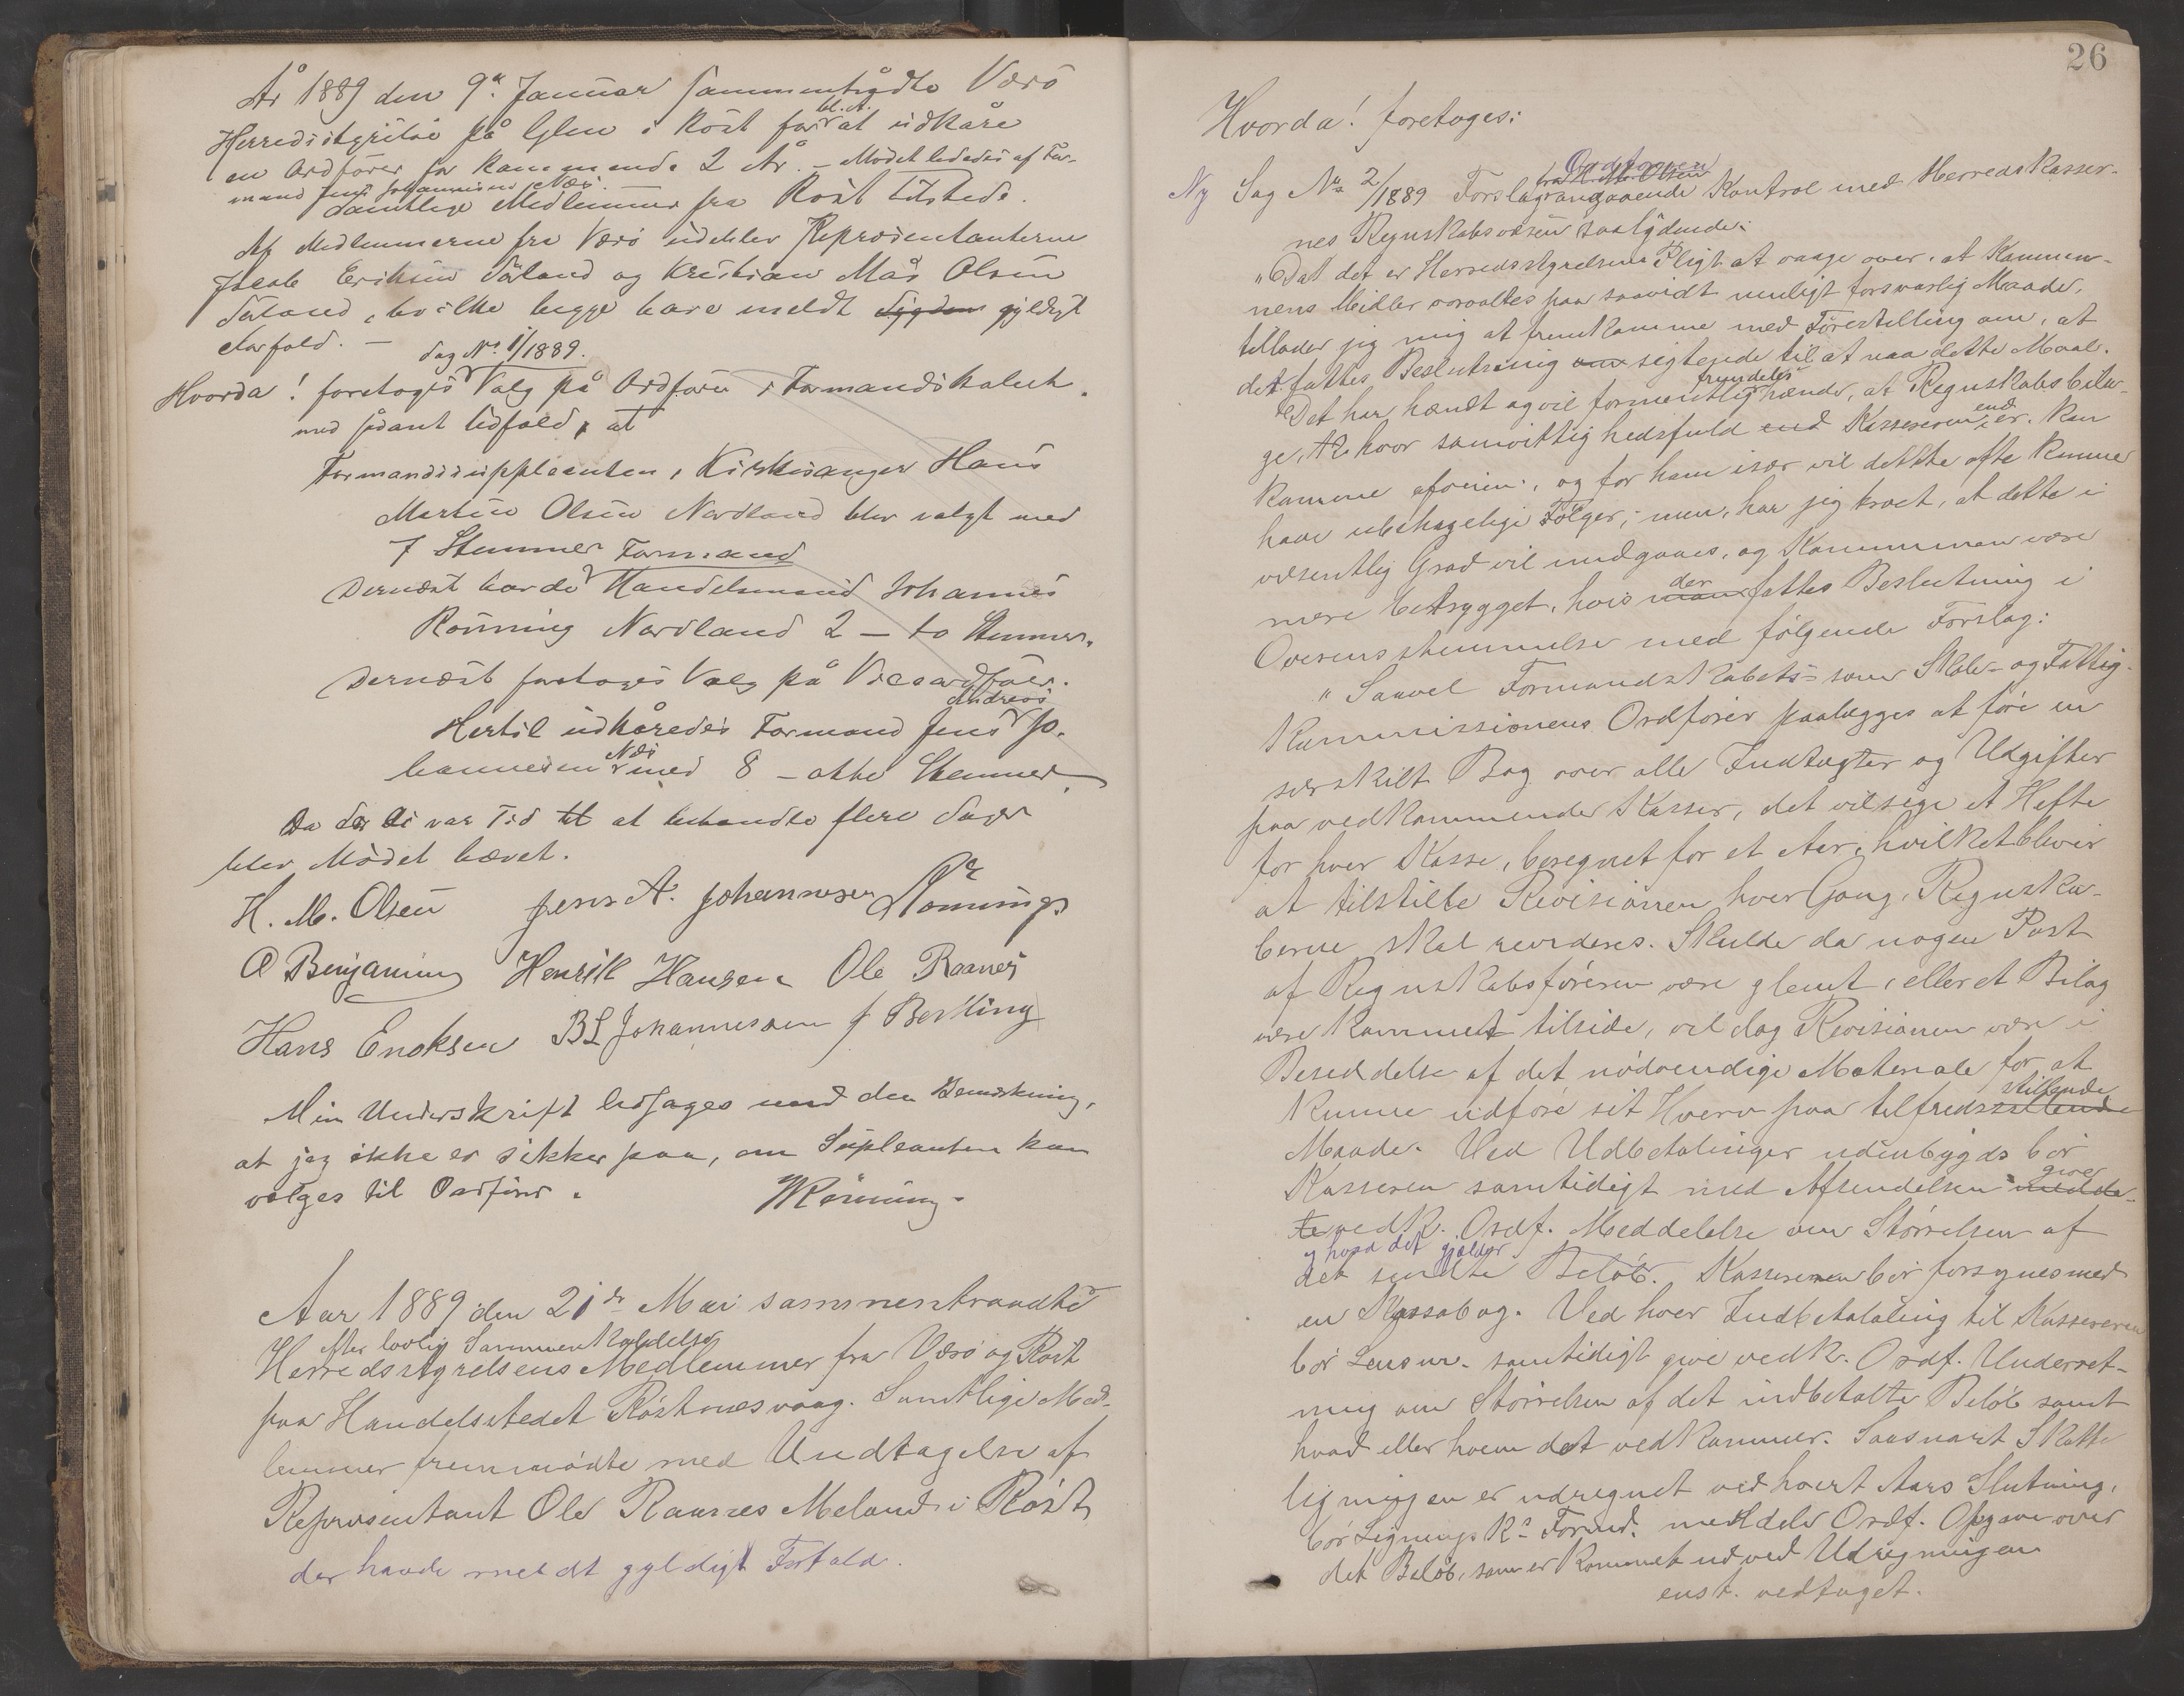 År 1889 den 9de Januar sammentrådte Værö
Herredsstyrelse på Glea i Röst for bl. A. at udkåre
en Ordförer for kommende 2 År. – Mödet lededes af For-
mand Jens Johannesen Næs.
Samtlige Medlemmer fra Röst tilstede.
Af Medlemmerne fra Værö udeblev Repræsentanterne
Jacob Eriksen Sørland og Kristian Mås Olsen
Sørland, hvilke begge have meldt Sygdom gyldigt
Forfald. – Sag No 1/1889.
Hvorda! foretoges Valg på Ordförer i Formandskabet
med sådant Udfald, at
Formandssuppleanten, Kirkesanger Hans
Martin Olsen Nordland blev valgt med
7 Stemmer
Dernæst havde Formand Handelsmand Johannes
Rönning Nordland 2 – to Stemmer.
Dernæst foretoges Valg på Viceordförer.
Hertil udkåredes Formand Jens Andreas Jo-
hannesen Næs med 8 – otte Stemmer.
Da der ei var Tid til at behandle flere Sager
blev Mödet hævet.
H. M. Olsen Jens A. Johannesen Rönning
O Benjamins Henrik Hansen Ole Raanes
Hans Enoksen B L Johannessen J Berling
Min Underskrift ledsages med den Bemærkning,
at jeg ikke er sikker paa, om Supleanten kan
vælges til Ordförer. J Rönning.
Aar 1889 den 21de Mai sammentraadte
efter lovlig Sammenkaldelse
Herredsstyrelsens Medlemmer fra Værö og Röst
paa Handelsstedet Röstnesvaag. Samtlige Med-
lemmer fremmödte med Undtagelse af
Repræsentant Ole Raanes Meland i Röst
der havde meldt gyldigt Forfald.
26
Hvorda! foretoges:
Ordföreren
Ny Sag No 2/1889 Forslag fra H. M. Olsen angaaende Kontrol med Herredskasser-
nes Regnskabsvæsen saalydende:
"Da det er Herredsstyrelsens Pligt at vaage over, at Kommu-
nens Midler forvaltes paa saavidt muligt forsvarlig Maade,
tillader jeg mig at fremkomme med Forestilling om, at
det fattes Beslutning om sigtende til at naa dette Maal.
Det har hændt og vil formentlig fremdeles hænde, at Regnskabsbila-
ge, til hvor samvittighedsfuld end Kassereren end er, kan
komme afveien, og for ham især vil dette ofte kunne
have ubehagelige Følger; men, har jeg troet, at dette i
væsentlig Grad vil undgaaes, og Kommunen være
mere betrygget, hvis man der fattes Beslutning i
Overensstemmelse med følgende Forslag:
"Saavel Formandskabets- som Skole- og Fattig-
kommissionens Ordförer paalægges at före en
særskilt Bog over alle Indtægter og Udgifter
paa vedkommende Kasser, det vil sige et Hefte
for hver Kasse, beregnet for et Aar, hvilket bliver
at tilstille Revisionen hver Gang, Regnska-
berne skal revideres. Skulde da nogen Post
af Regnskabsføreren være glemt, eller et Bilag
være kommet tilside, vil dog Revisionen være i
Besiddelse af det nödvendige Materiale for at
kunne udføre sit Hverv paa tilfredsstillende stillende
Maade. Ved Udbetalinger udenbygds bör
Kassereren samtidigt med Afsendelsen medde- give
le vedk. Ordf. Meddelelse om Størrelsen af
og hvad det gjælder
det sendte Belöb. Kassereren bör forsynes med
en Kassabog. Ved hver Indbetaling til Kassereren
bör Lensm. samtidigt give vedk. Ordf. Underret-
ning om Störrelsen af det indbetalte Belöb samt
hvad eller hvem det vedkommer. Saasnart Skatte-
ligningen er udregnet ved hvert Aars Slutning,
bör Lignings Ks Formd. meddele Ordf. Opgave over
det Belöb, som er kommet ud ved Udregningen
enst. vedtaget.